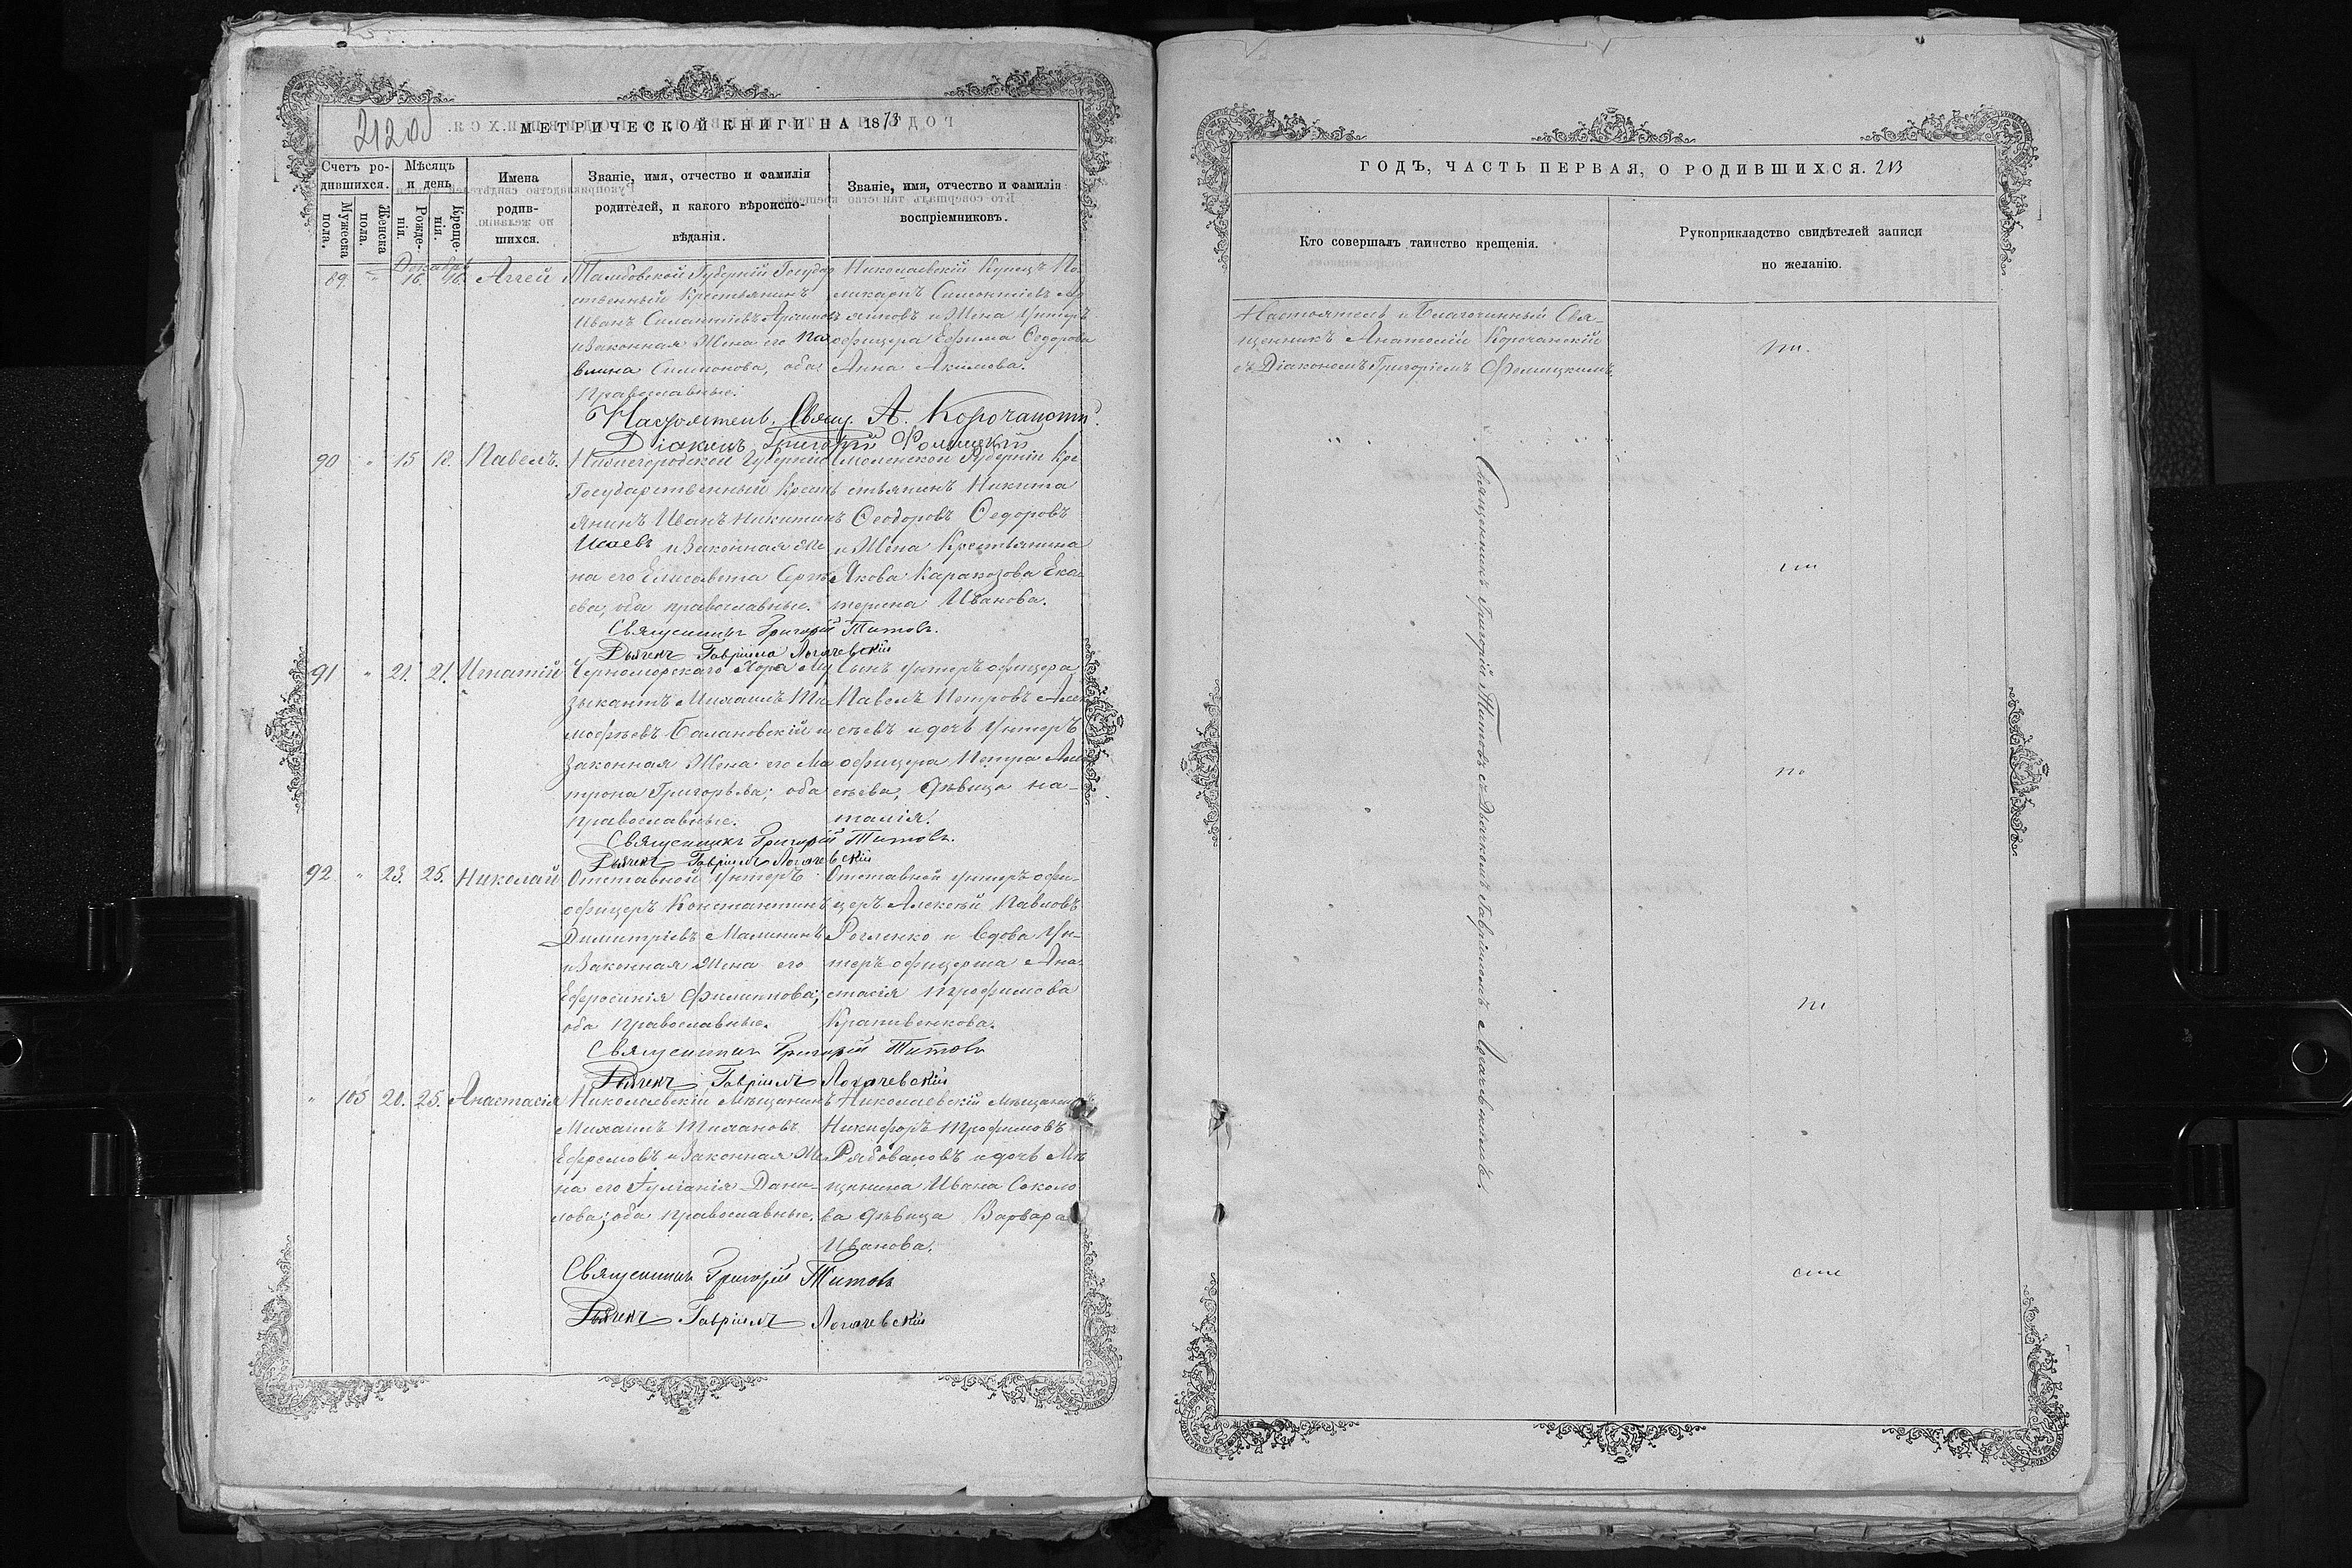 212
МЕТРИЧЕСКОЙ КНИГИ НА 1873
Счетъ ро-
дившихся.
Мужеска
пола.
Женска
пола.
Мѣсяцъ
и день
Рожде-
нія.
Креще-
нія.
Имена
родив-
шихся.
Званіе, имя, отчество и фамилія
родителей, и какого вѣроиспо-
вѣданія.
Званіе, имя, отчество и фамилія
воспріемниковъ.
Декабрь
89. " 16. 16. Аггей
Тамбовской Губерніи Государ
ственный Крестьянинъ
Иванъ Силантіевъ
и Законная Жена его Па
влина Симионова, оба
Православные.
Николаевскій Купецъ По
ликарпъ
и Жена Унтеръ
офицера Ефима Ѳедорова
Анна Акимова.
Настоятель, Свящ. А. Корочанскій
Діаконъ Григорій
90 " 15 18. Павелъ.
Нижегородской Губерніи
Государственный Кресть
янинъ Иванъ Никитинъ
Исаевъ и Законная Же
на его Елисавета Серге
ева, оба православные.
Смоленской Губерніи Кре
стьянинъ Никита
Ѳеодоровъ Ѳедоровъ
и Жена Крестьянина
Якова Каракозова Ека
терина Иванова.
Священникъ Григорій Титовъ.
Дьячекъ Гавріилъ Логачевскій
91 " 21. 21. Игнатій
Черноморскаго Хора Му
зыкантъ Михаилъ Ти
мофѣевъ Балановскій и
Законная Жена его Ма
трона Григорьева; оба
православные.
Сынъ Унтеръ офицера
Павелъ Петровъ Алек
сѣевъ и дочь Унтеръ
офицера Петра Алек
сѣева, дѣвица На-
талія.
Священникъ Григорій Титовъ.
Дьячекъ Гавріилъ Логачевскій
92 " 23. 25. Николай
Отставной Унтеръ
офицеръ Константинъ
Димитріевъ Малининъ
и Законная Жена его
Ефросинія Филиппова;
оба православные.
Отставной Унтеръ офи-
церъ Алексѣй Павловъ
и Вдова Ун-
теръ офицерша Ана
стасія Трофимова
Крапивенкова.
Священникъ Григорій Титовъ
Дьячекъ Гавріилъ Логачевскій
" 105 20. 25. Анастасія
Николаевскій Мѣщанинъ
Михаилъ Тихановъ
Ефремовъ и Законная Же
на его Іуліанія Дани-
лова; оба православные.
Николаевскій Мѣщанинъ
Никифоръ Трофимовъ
Рябоваловъ и дочь Мѣ
щанина Ивана Соколо
ва дѣвица Варвара
Иванова.
Священникъ Григорій Титовъ
Дьячекъ Гавріилъ Логачевскій
ГОДЪ, ЧАСТЬ ПЕРВАЯ, О РОДИВШИХСЯ. 213
Кто совершалъ таинство крещенія.
Рукоприкладство свидѣтелей записи
по желанію.
Настоятель и Благочинный Свя-
щенникъ Анатолій Корочанскій
съ Діакономъ Григоріемъ
Священникъ Григорій Титовъ съ Дьячкомъ Гавріиломъ Логачевскимъ.